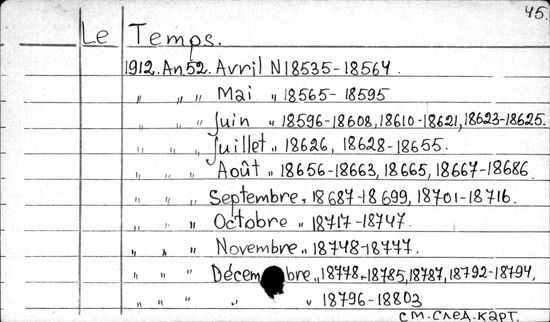 45.
Le Temps.
1912. An. 52. Avril N 18535-18564.
" " " Mai " 18565-18595
" " " Juin " 18596-18608, 18610-18621, 18623-18625.
" " " Juillet " 18626, 18628-18655.
" " " Août " 18656-18663, 18665, 18667-18686
" " " Septembre " 18687-18699, 18701-18716.
" " " Octobre " 18717-18747.
" " " Novembre " 18748-18777.
" " " Décembre " 18778-18785, 18787, 18792-18794,
" " " " 18796-18803
см. след. карт.